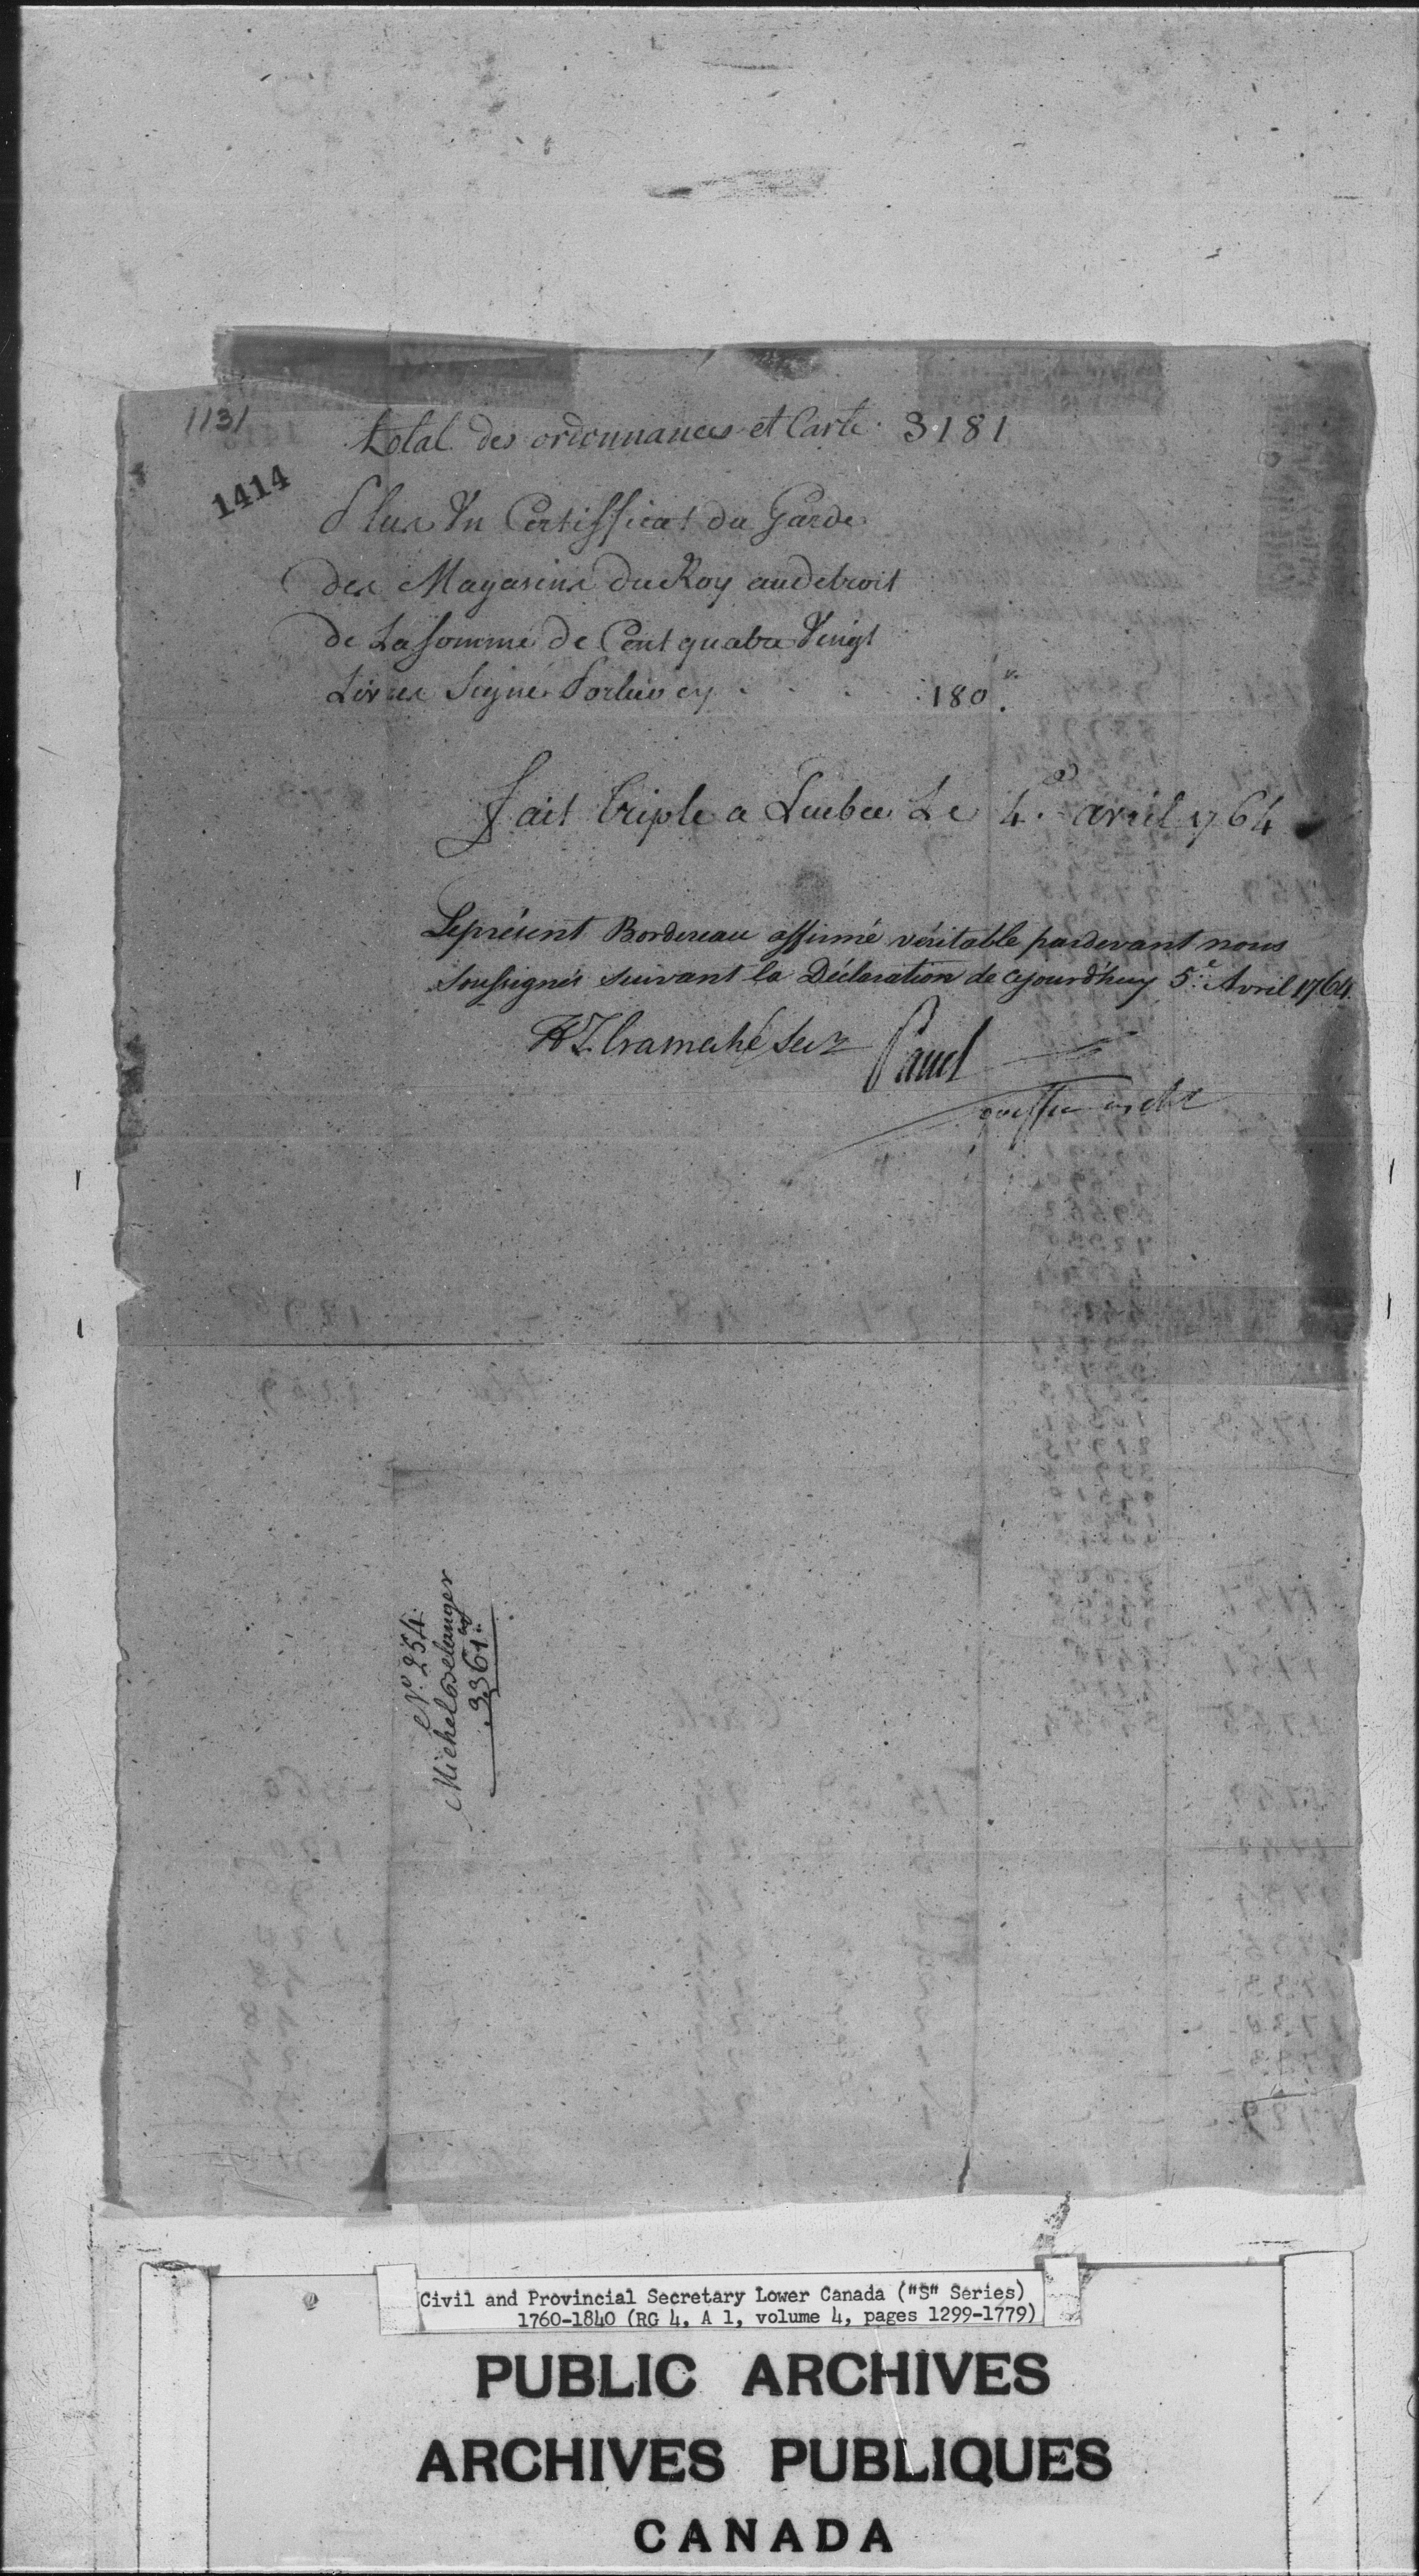 1131
total des ordonnances et Carte 3181
1414
Plus Un Certifficat du Garde
des Magasins du Roy au detroit
de La Somme de Cent quatre Vingt
Livres Signé en 180
fait triple a Quebec Le 4.e avril 1764
Le présent Bordereau affirmé véritable pardevant nous
soussignés suivant la Déclaration de cejourd'huy 5.e Avril 1764.
H T Cramahé Secr Panet
greffier
N.o 254.
Michel Belanger
3361.
Civil and Provincial Secretary Lower Canada ("S" Series)
1760-1840 (RG 4, A 1, volume 4, pages 1299-1779)
PUBLIC ARCHIVES
ARCHIVES PUBLIQUES
CANADA